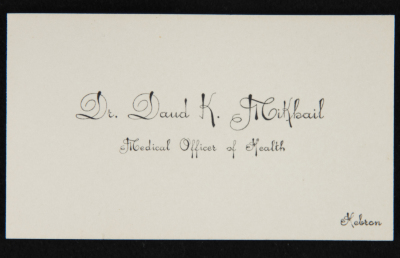 Dr. Daud K. Mikhail
Medical Officer of Health
Hebron